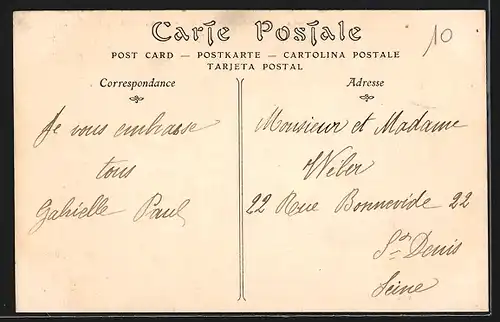 Carte Postale
10
POST CARD — POSTKARTE — CARTOLINA POSTALE
TARJETA POSTAL
Correspondance
Adresse
Je vous embrasse
tous
Gabielle Paul
Monsieur et Madame
Weler
22 Rue Bonnevide 22
St Denis
Seine